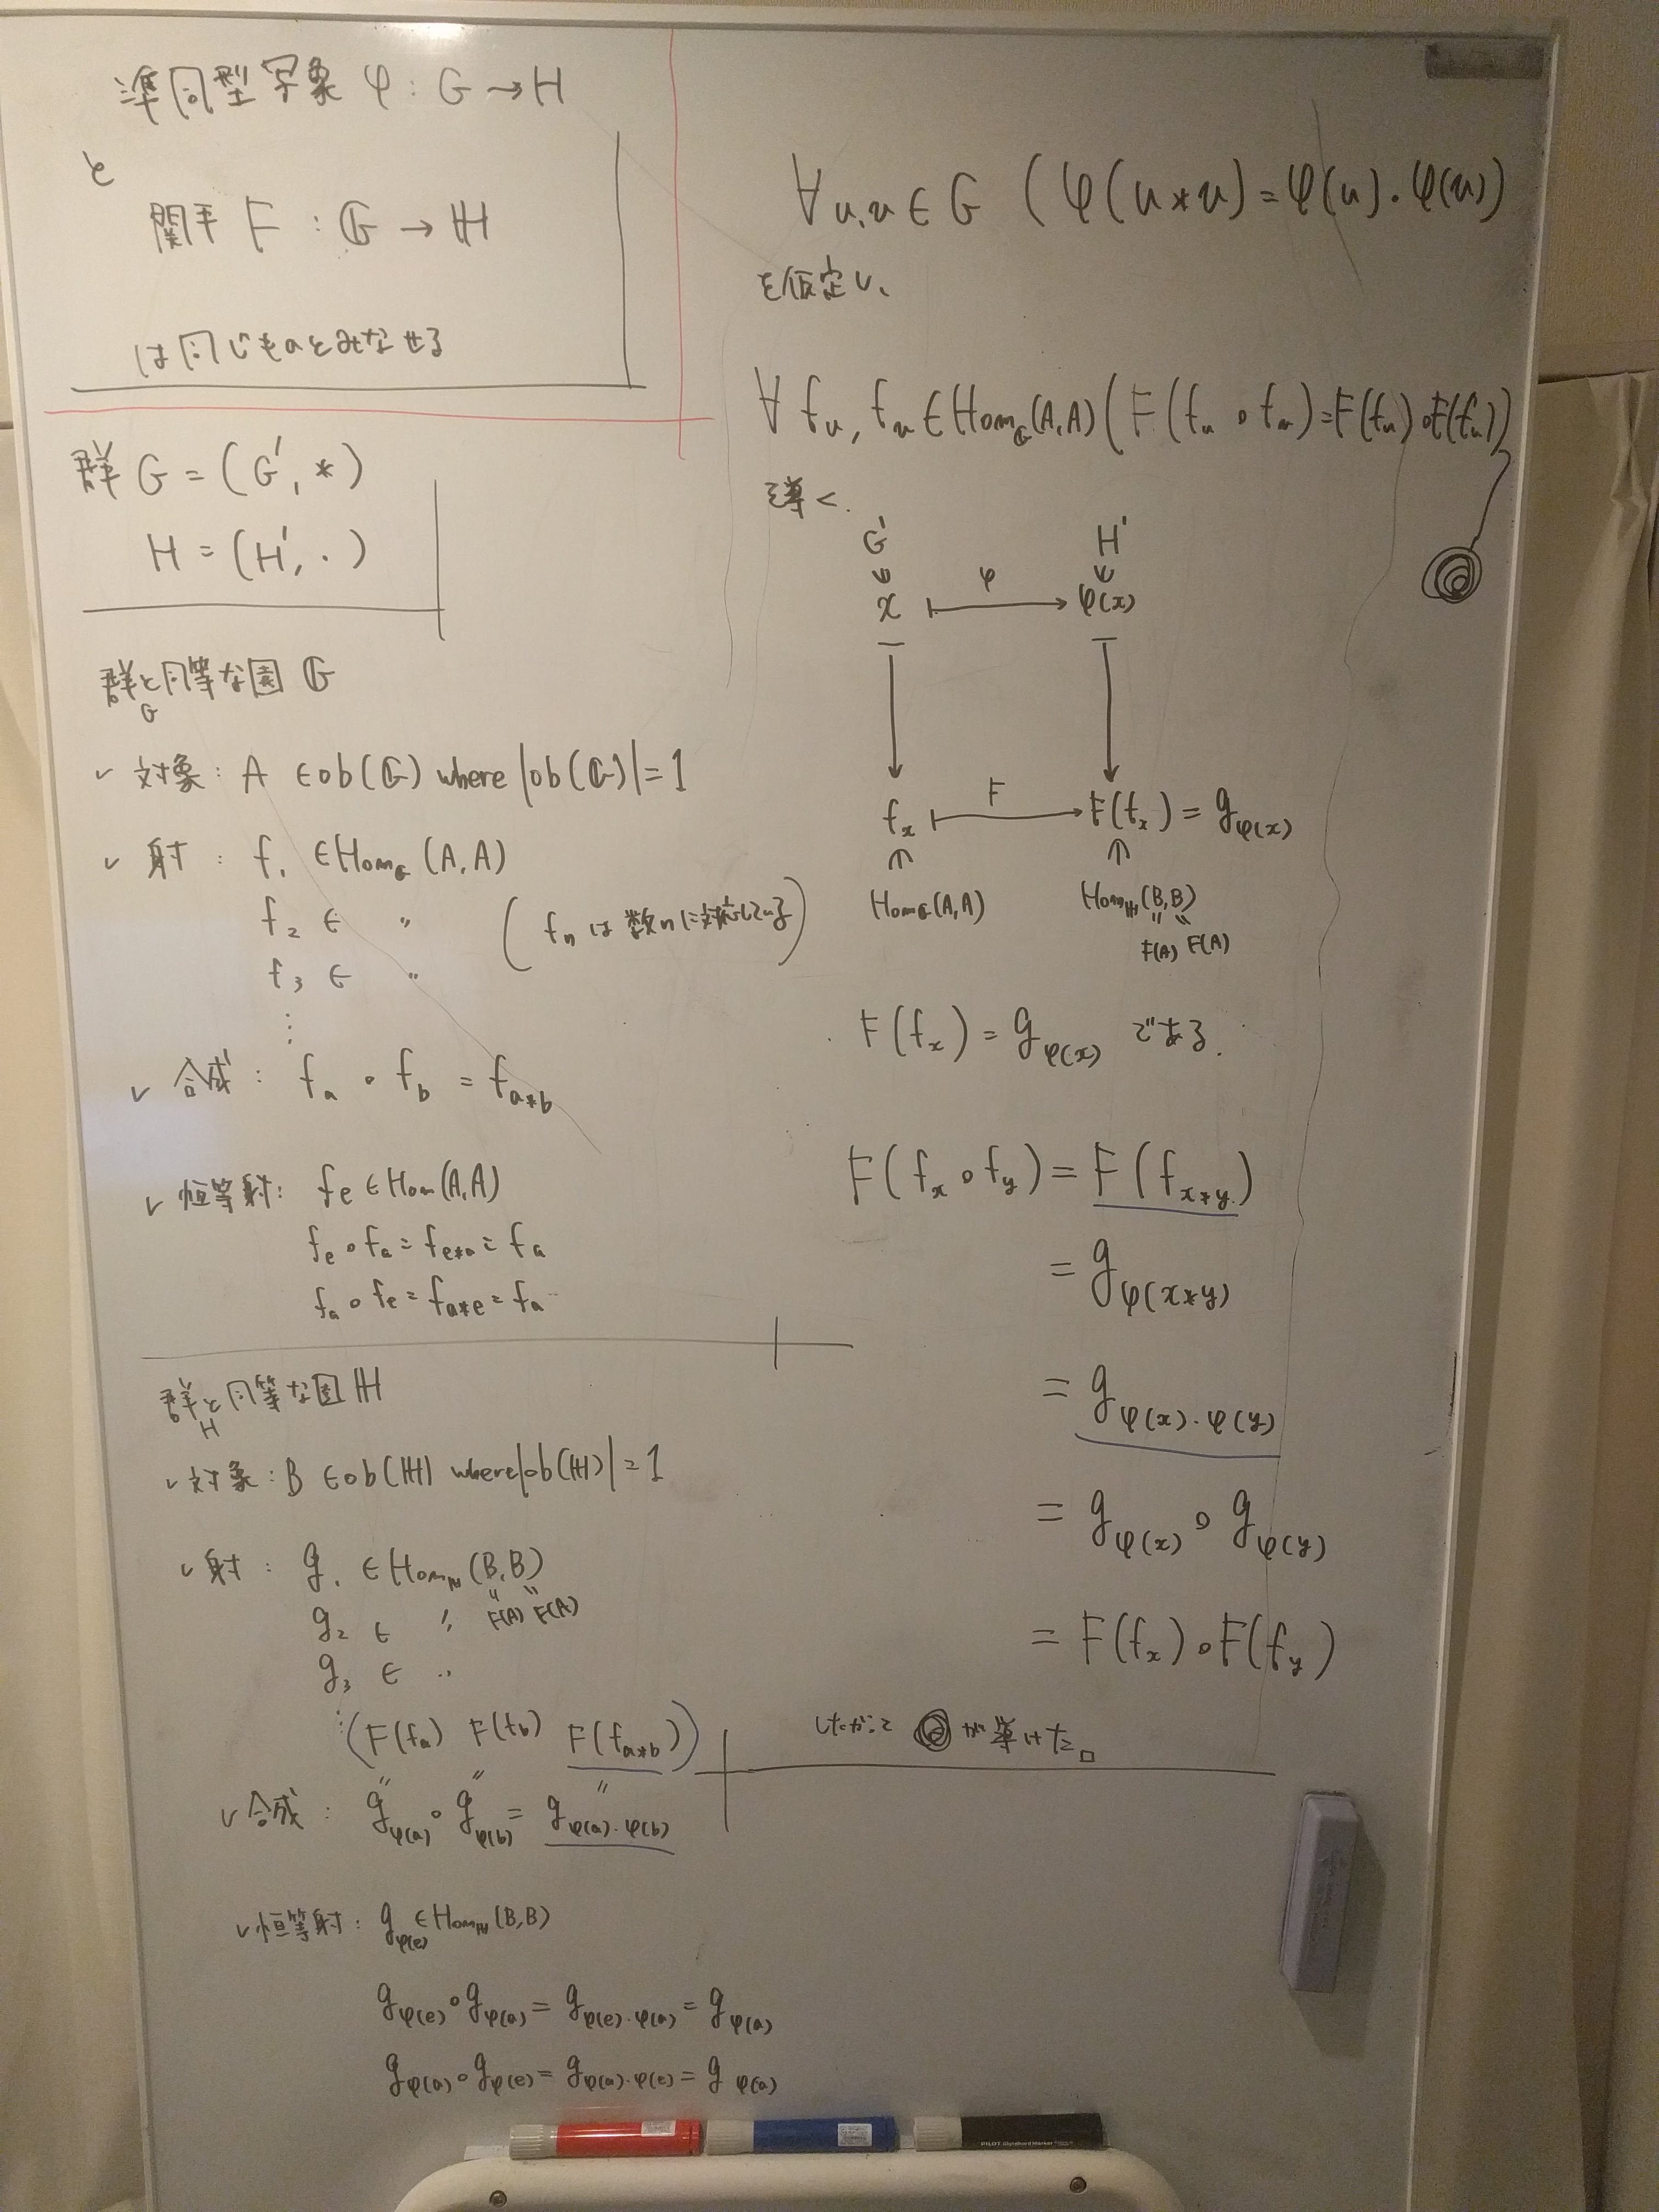 準同型写象 φ : G → H
と
関手 F : 𝔾 → ℍ
は同じものとみなせる
群 G = (G', *)
H = (H', ·)
群Gと同等な圏 𝔾
✓ 対象 : A ∈ ob(𝔾) where |ob(𝔾)| = 1
✓ 射 : f₁ ∈ Hom𝔾(A, A)
f₂ ∈ 〃
(fₙ は数nに対応している)
f₃ ∈ 〃
⋮
✓ 合成 : f_a ∘ f_b = f_{a*b}
✓ 恒等射 : f_e ∈ Hom(A, A)
f_e ∘ f_a = f_{e*a} = f_a
f_a ∘ f_e = f_{a*e} = f_a
群Hと同等な圏 ℍ
✓ 対象 : B ∈ ob(ℍ) where |ob(ℍ)| = 1
✓ 射 : g₁ ∈ Homℍ(B, B)
〃 〃
F(A) F(A)
g₂ ∈ 〃
g₃ ∈ 〃
⋮
(F(f_a) F(f_b) F(f_{a*b}))
〃 〃 〃
✓ 合成 : g_{φ(a)} ∘ g_{φ(b)} = g_{φ(a)·φ(b)}
✓ 恒等射 : g_{φ(e)} ∈ Homℍ(B, B)
g_{φ(e)} ∘ g_{φ(a)} = g_{φ(e)·φ(a)} = g_{φ(a)}
g_{φ(a)} ∘ g_{φ(e)} = g_{φ(a)·φ(e)} = g_{φ(a)}
∀u, u ∈ G (φ(u*u) = φ(u)·φ(u))
を仮定し、
∀f_u, f_u ∈ Hom𝔾(A, A) (F(f_u ∘ f_u) = F(f_u) ∘ F(f_u))
を導く.
G' H'
x φ φ(x)
f_x F F(f_x) = g_{φ(x)}
Hom𝔾(A, A) Homℍ(B, B)
〃 〃
F(A) F(A)
F(f_x) = g_{φ(x)} である.
F(f_x ∘ f_y) = F(f_{x*y})
= g_{φ(x*y)}
= g_{φ(x)·φ(y)}
= g_{φ(x)} ∘ g_{φ(y)}
= F(f_x) ∘ F(f_y)
したがって ◎ が導けた。□
PILOT